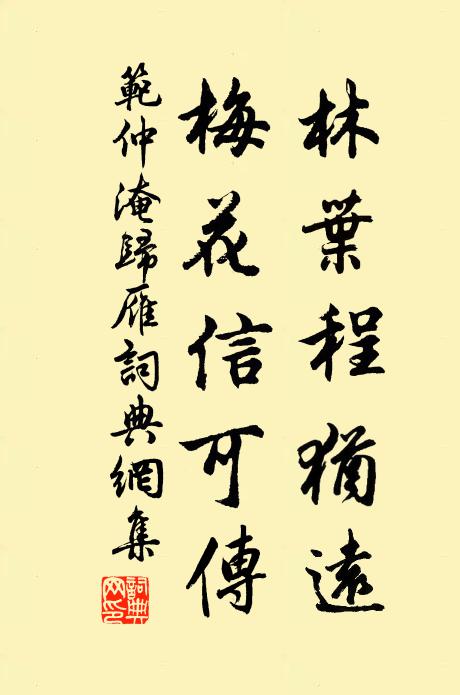 林葉程猶遠
梅花信可傳
範仲淹歸雁詞典網集
詞典網印